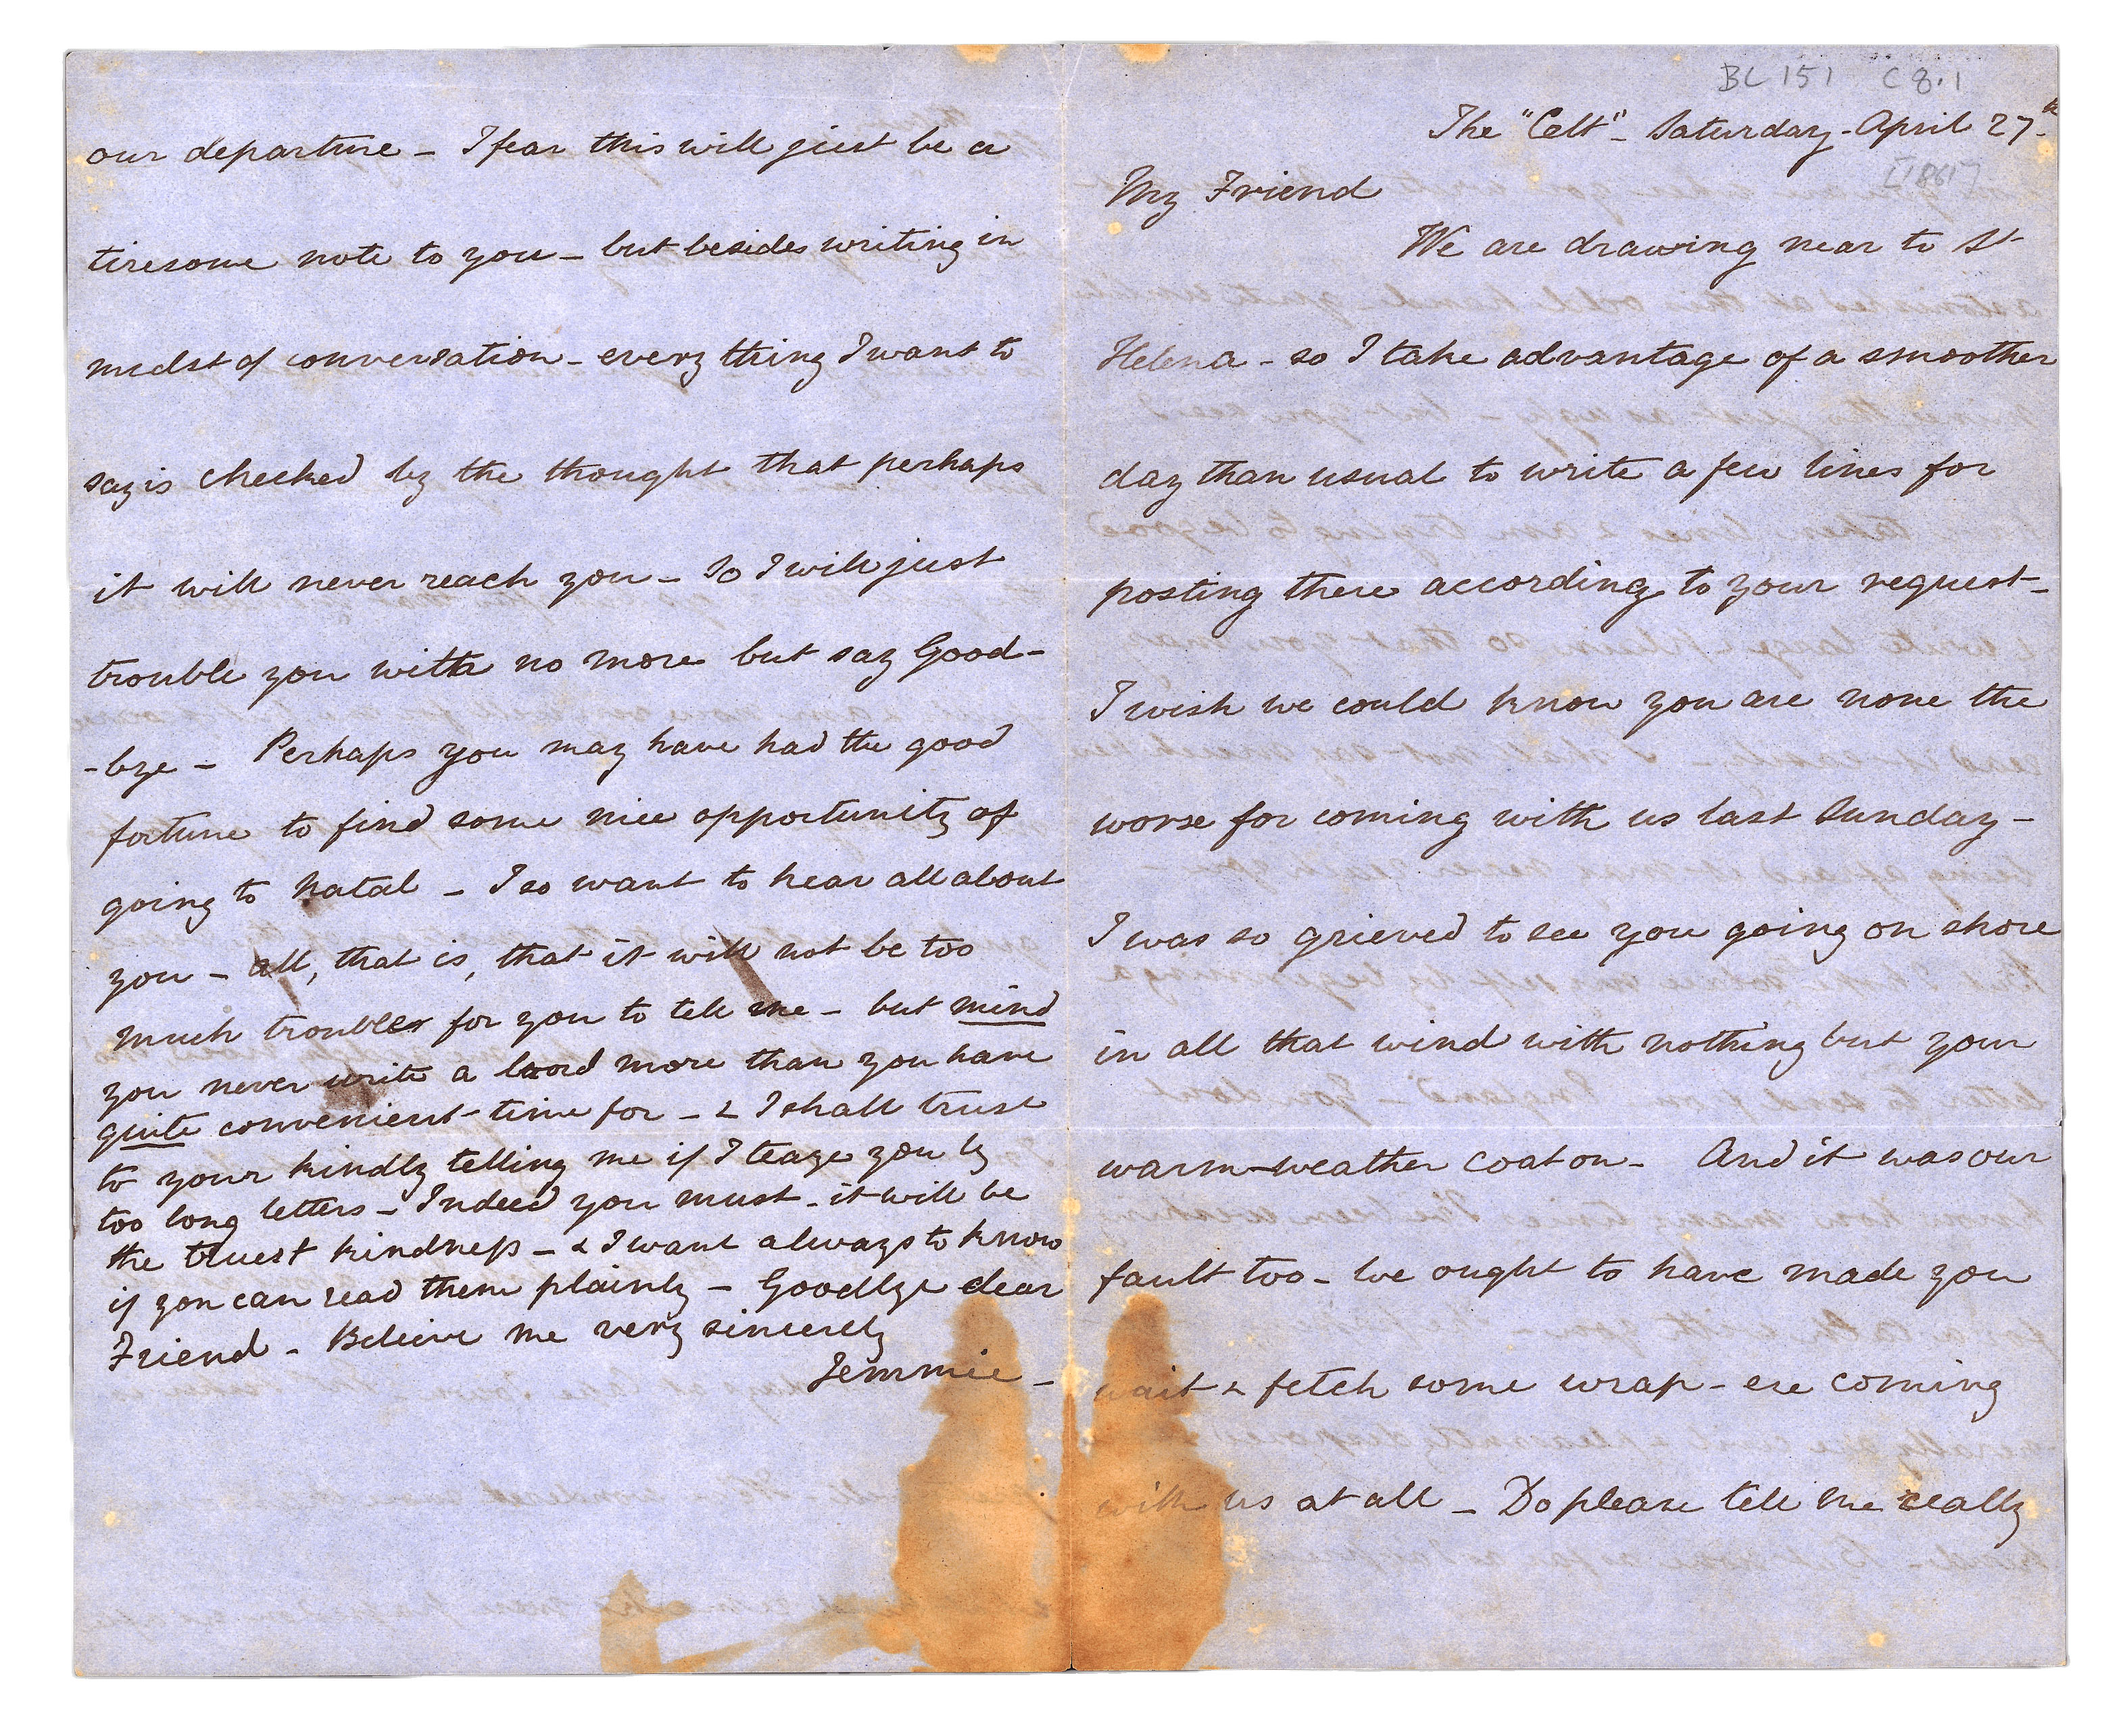 BL 151 C 8.1
The "Celt" - Saturday - April 27th
[1861]
My Friend
We are drawing near to St
Helena - so I take advantage of a smoother
day than usual to write a few lines for
posting there according to your request -
I wish we could know you are none the
worse for coming with us last Sunday -
I was so grieved to see you going on shore
in all that wind with nothing but your
warm-weather coat on - And it was our
fault too - we ought to have made you
wait & fetch some wrap - ere coming
with us at all - Do please tell me really
our departure - I fear this will just be a
tiresome note to you - but besides writing in
midst of conversation - every thing I want to
say is checked by the thought that perhaps
it will never reach you - So I will just
trouble you with no more but say Good-
-bye - Perhaps you may have had the good
fortune to find some nice opportunity of
going to Natal - I so want to hear all about
you - all, that is, that it will not be too
much trouble for you to tell me - but mind
you never write a word more than you have
quite convenient time for - & I shall trust
to your kindly telling me if I teaze you by
too long letters - Indeed you must - it will be
the truest kindness - & I want always to know
if you can read them plainly - Goodbye dear
Friend - Believe me very sincerely
Jemmie -